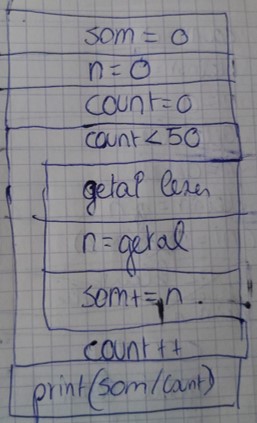 som = 0
n = 0
count = 0
count < 50
getal lezen
n = getal
som += n
count ++
print(som/count)